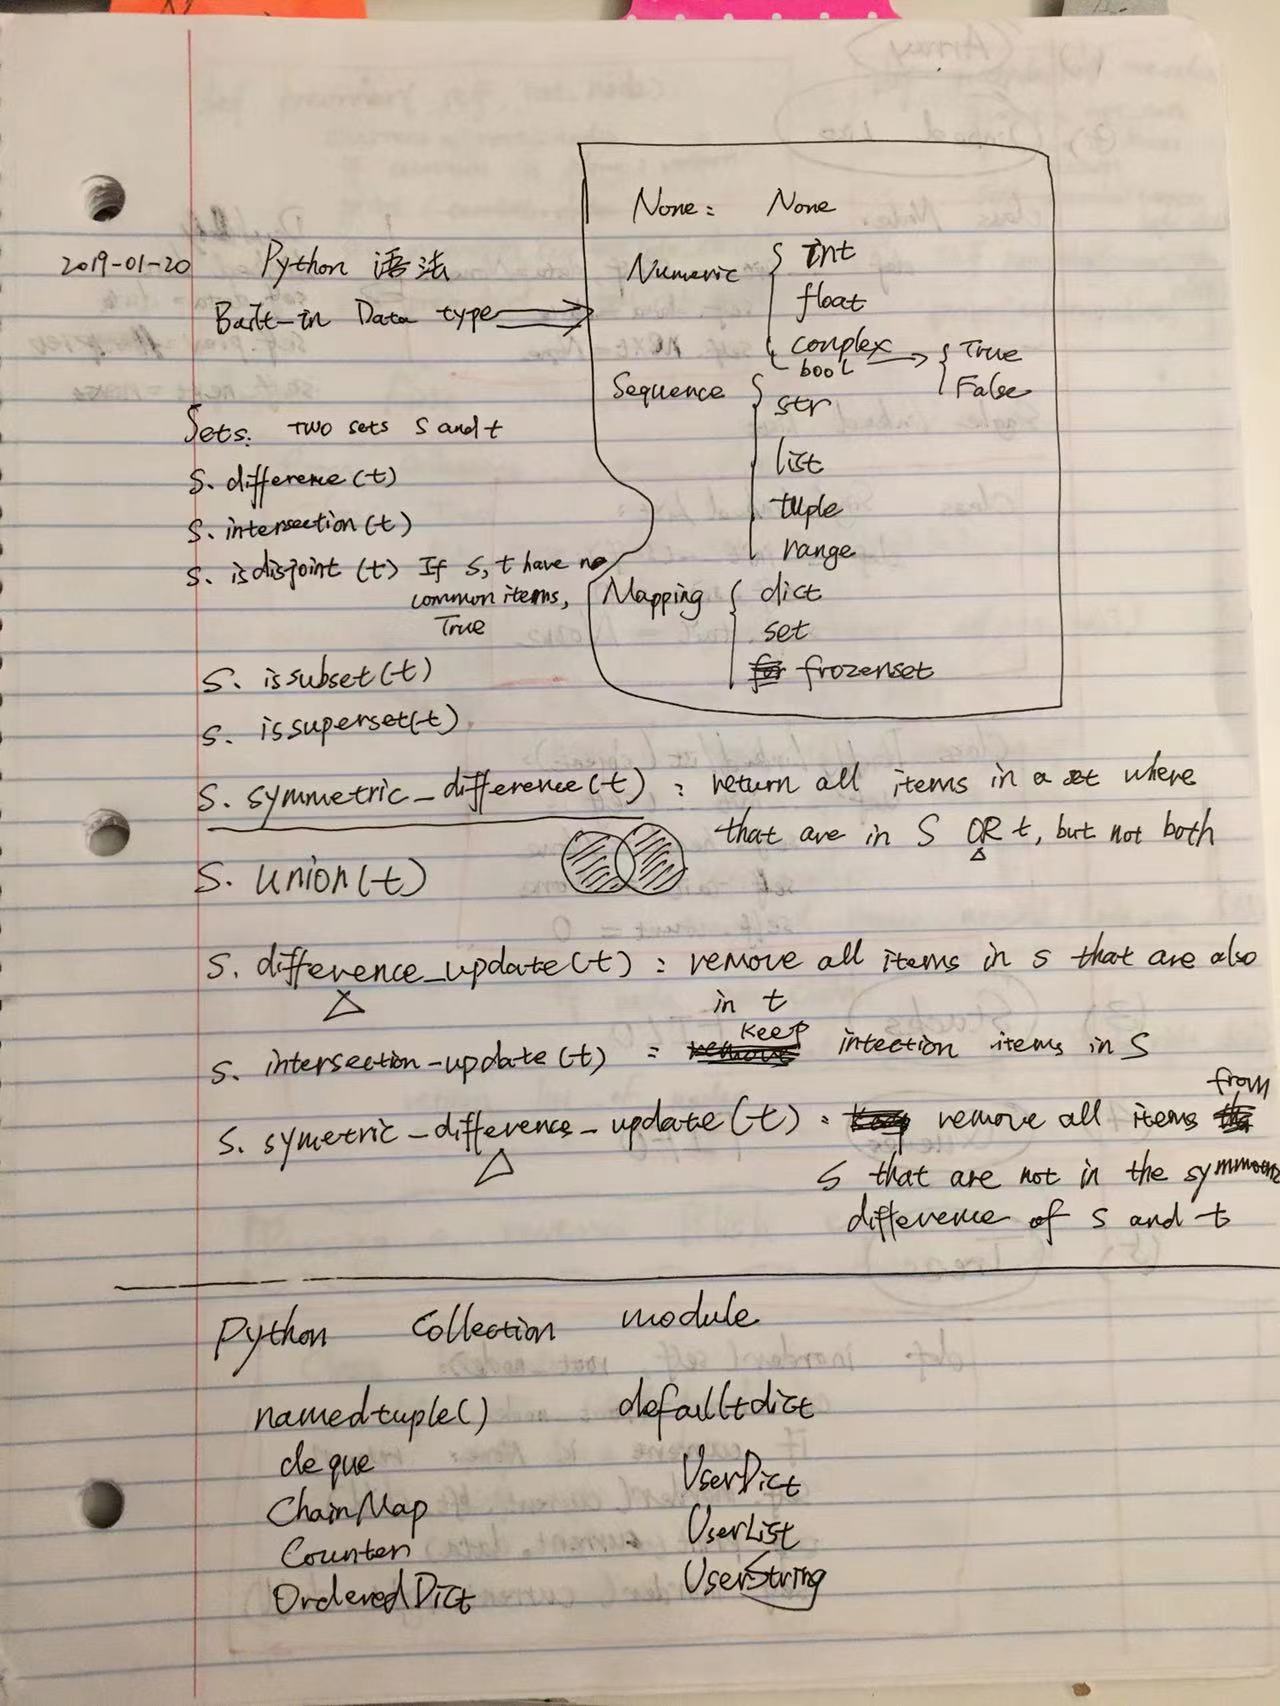 2019-01-20 Python 语法
Built-in Data type
None: None
Numeric int
float
complex
bool True
False
Sequence str
list
tuple
range
Mapping dict
set
frozenset
Sets: TWO sets S and t
S. difference(t)
S. intersection(t)
S. isdisjoint (t) If S, t have no
common items,
True
S. issubset(t)
S. issuperset(t)
S. symmetric_difference(t) : return all items in a set where
that are in S OR t, but not both
S. union(t)
S. difference_update(t) : remove all items in s that are also
in t
S. intersection-update(t) : keep intection items in S
S. symetric_difference_update(t) : remove all items from
S that are not in the
difference of s and t
Python Collection module
namedtuple() defaultdict
deque UserDict
ChainMap UserList
Counter UserString
OrderedDict